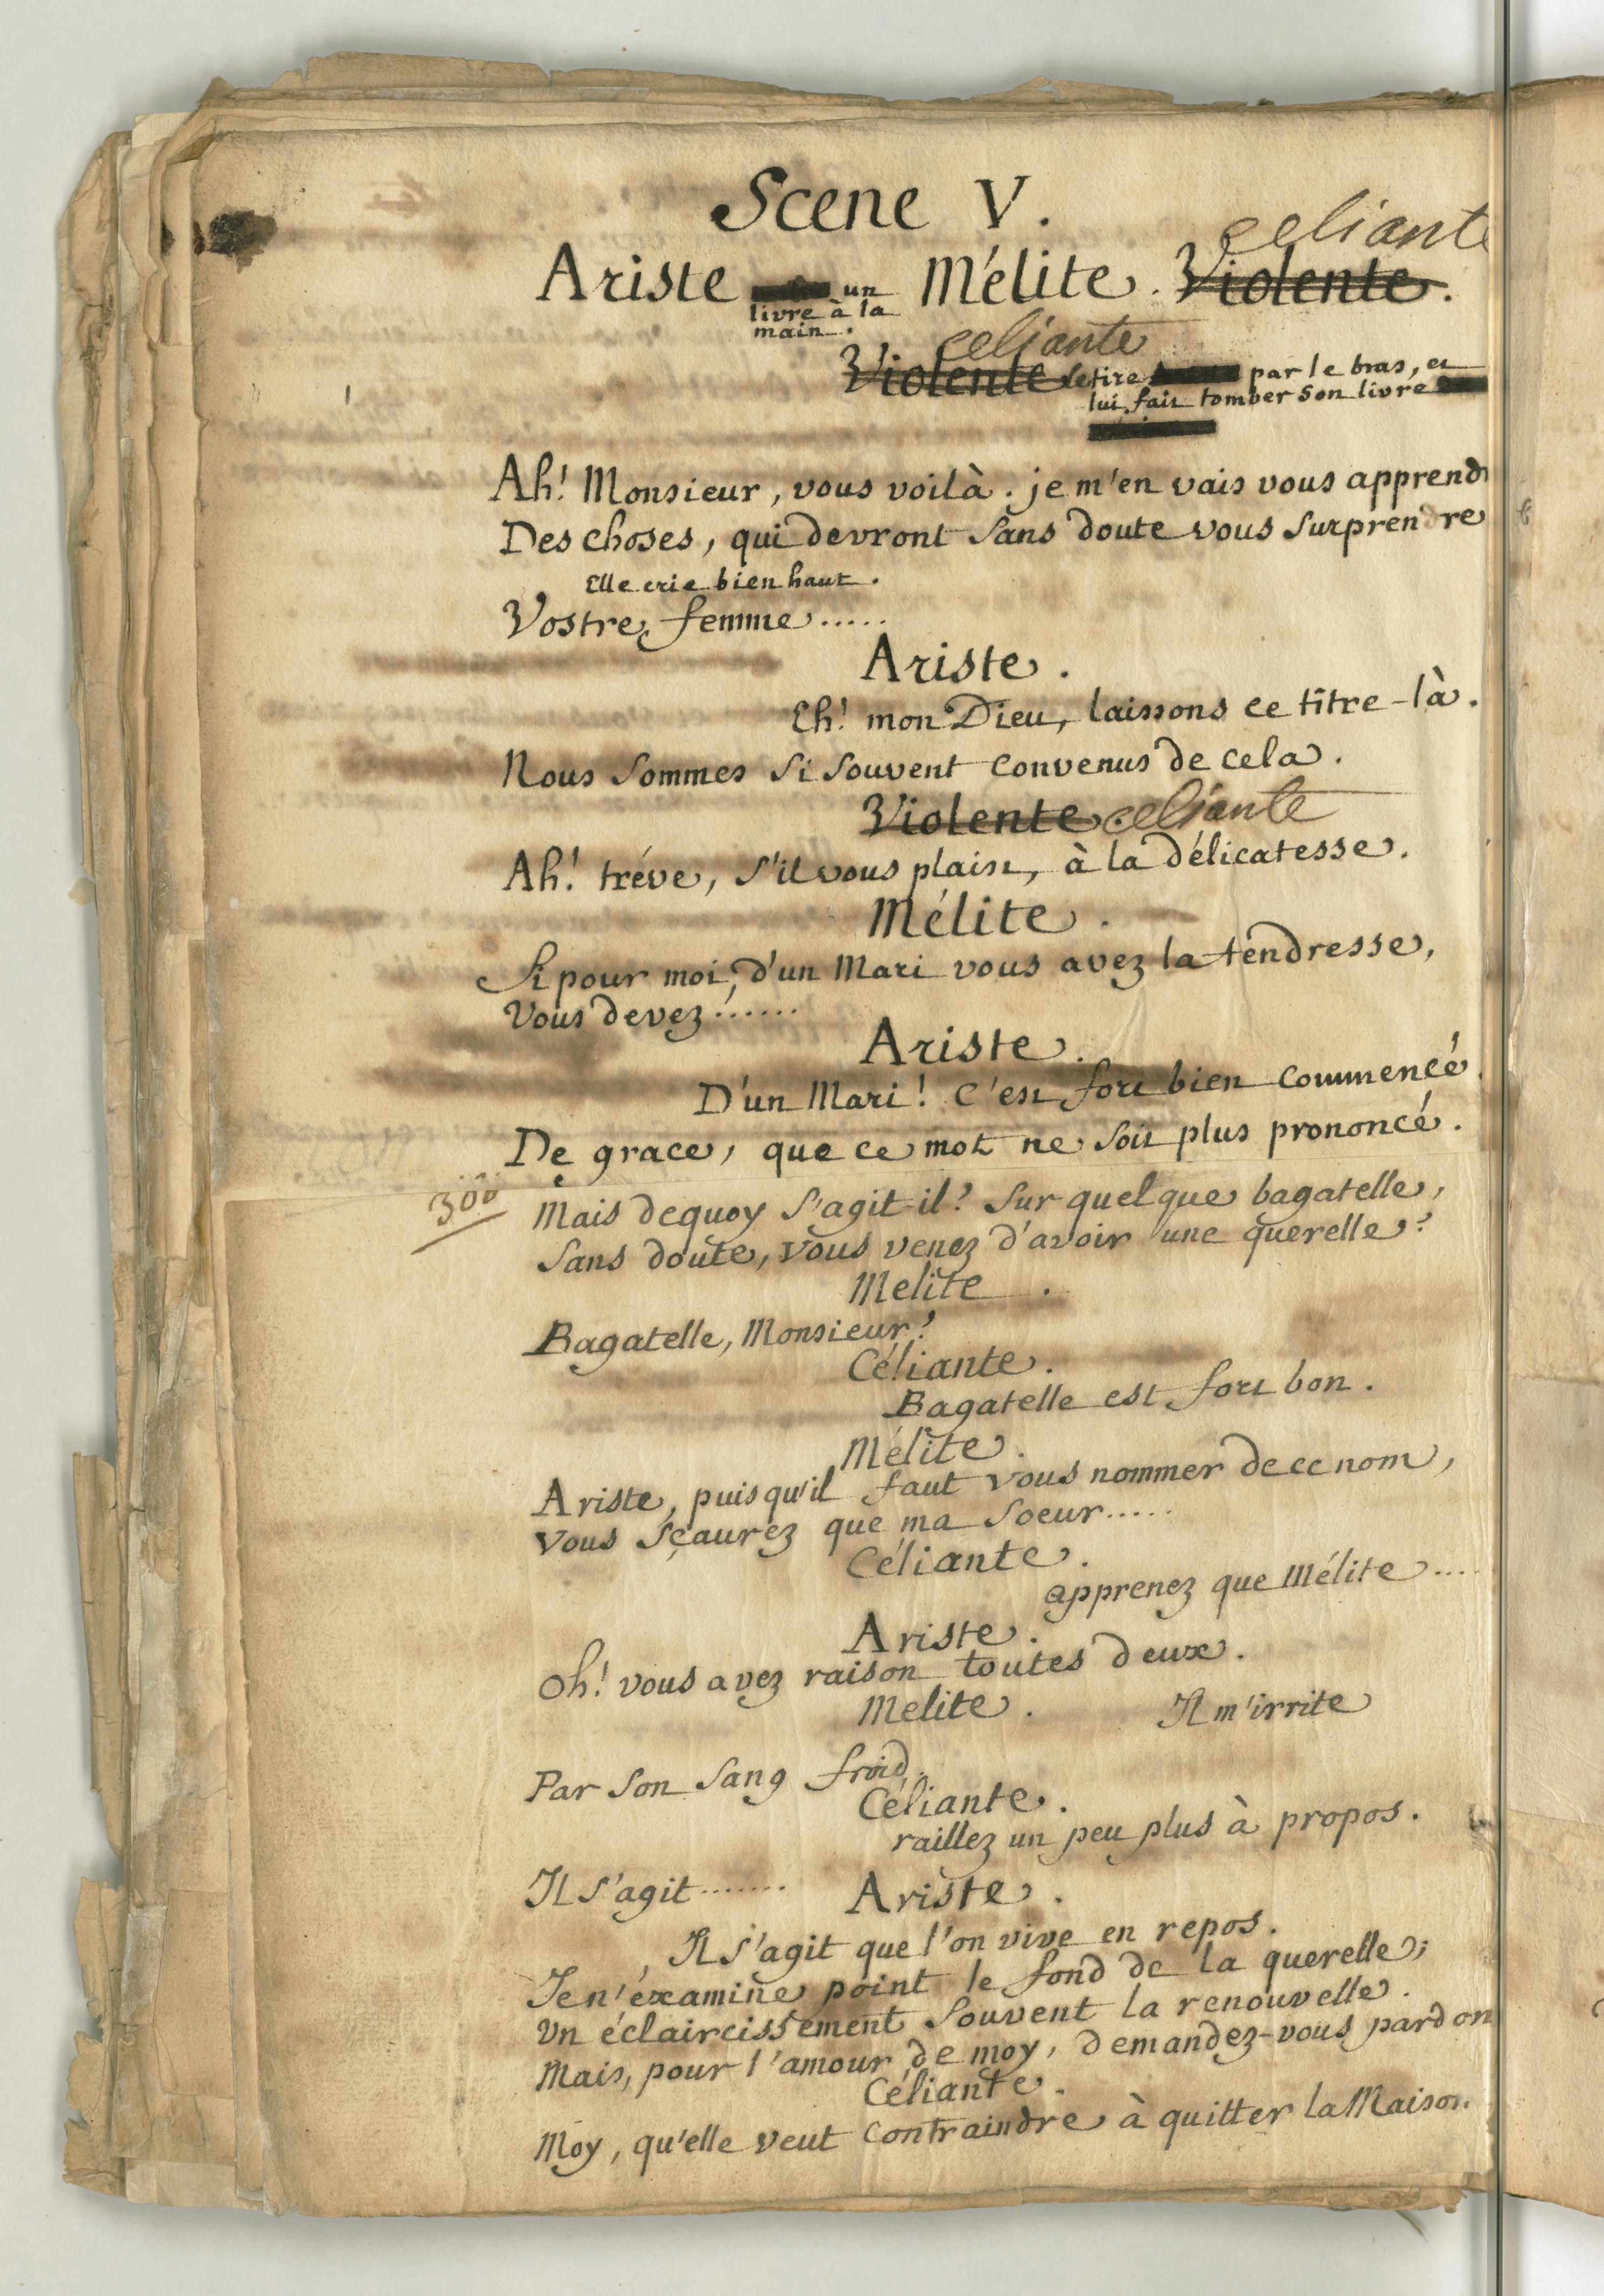 Scene V.
celiante
Ariste un Mélite. Violente.
livre à la
main.
celiante
Violente le tire par le bras, et
lui fait tomber son livre
Ah! Monsieur, vous voilà. je m'en vais vous apprendr
Des choses, qui devront sans doute vous surprendre
Elle crie bien haut.
Vostre femme.....
Ariste.
Eh! mon Dieu, laissons ce titre-là.
Nous sommes si souvent convenus de cela.
Violente. celiante
Ah! tréve, s'il vous plaist, à la délicatesse.
Mélite.
Si pour moi, d'un Mari vous avez la tendresse,
Vous devez......
Ariste.
D'un Mari! C'est fort bien commencé.
De grace, que ce mot ne soit plus prononcé.
300
Mais dequoy s'agit-il? Sur quelque bagatelle,
Sans doute, vous venez d'avoir une querelle?
Melite.
Bagatelle, Monsieur?
Céliante.
Bagatelle est fort bon.
Mélite.
Ariste, puisqu'il faut vous nommer de ce nom,
Vous sçaurez que ma soeur.....
Céliante.
apprenez que Mélite....
Ariste.
Oh! vous avez raison toutes deux.
Melite.
Il m'irrite
Par son sang froid.
Céliante.
raillez un peu plus à propos.
Il s'agit.......
Ariste.
Il s'agit que l'on vive en repos.
Je n'éxamine point le fond de la querelle;
Un éclaircissement souvent la renouvelle.
Mais, pour l'amour de moy, demandez-vous pardon
Céliante.
Moy, qu'elle veut contraindre à quitter la Maison.